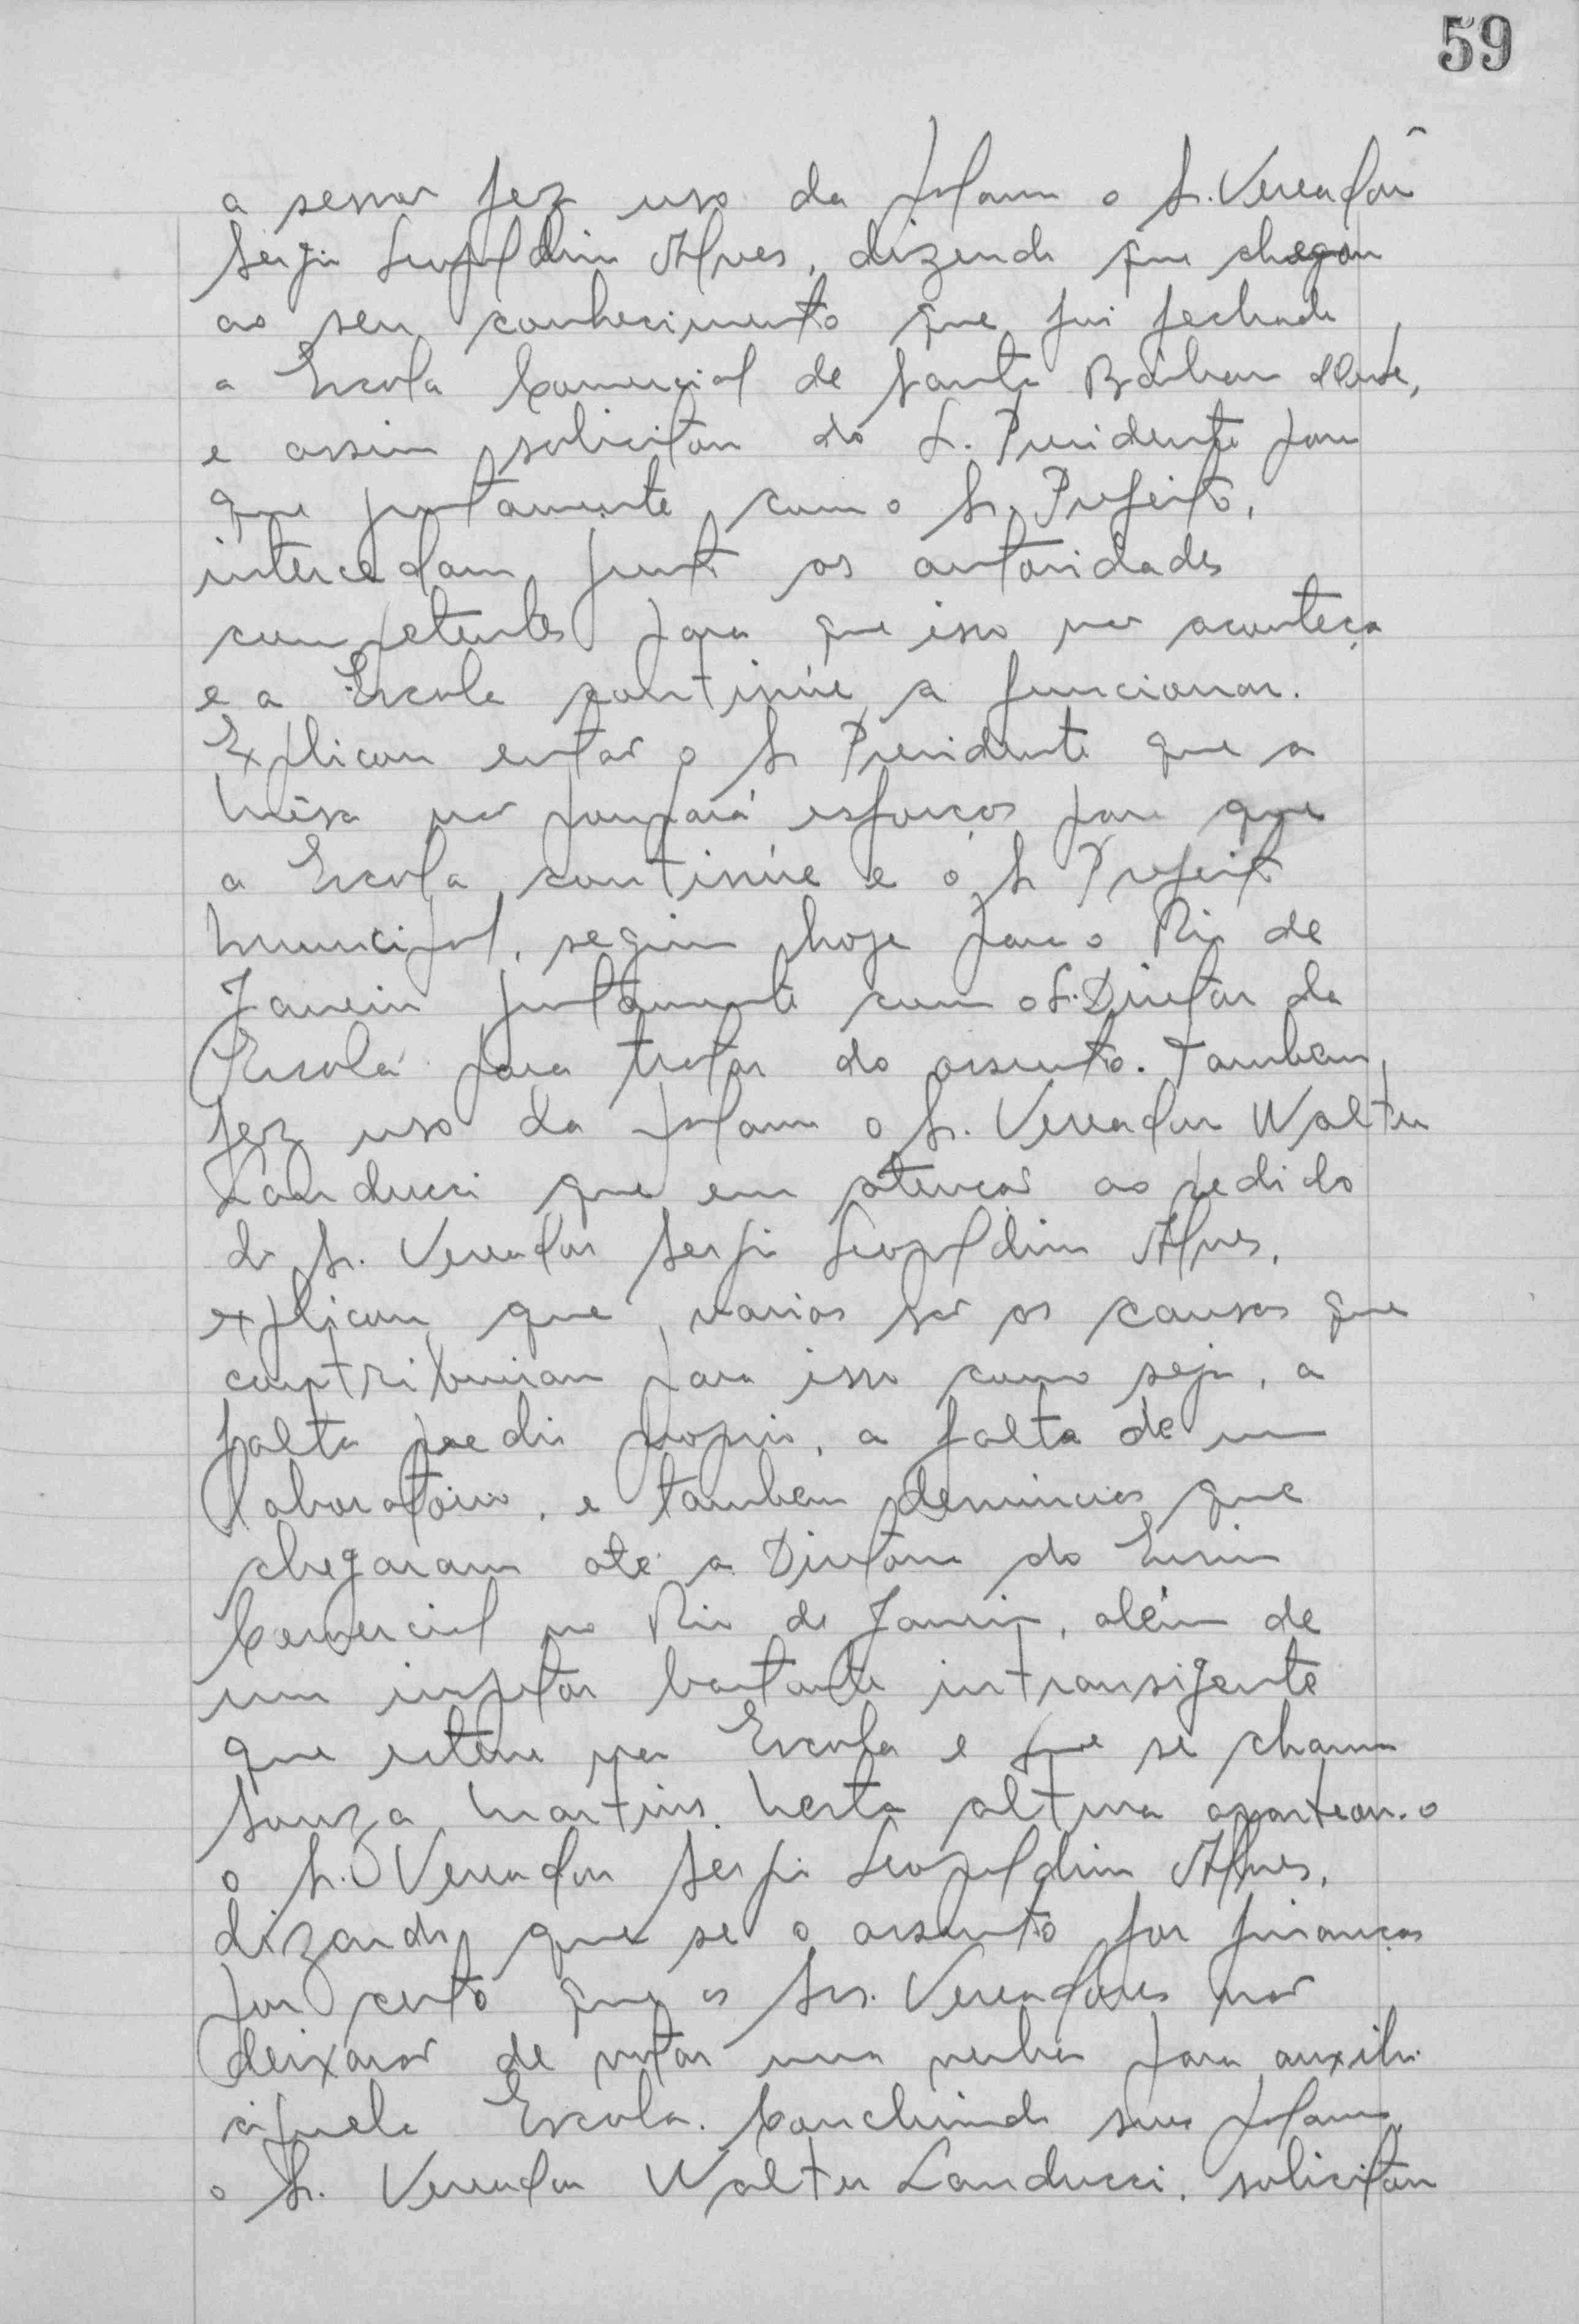 59
a sessão fez uso da palavra o Sr. Vereador
Sergio Leopoldino Alves, dizendo que chegou
ao seu conhecimento que foi fechada
a Escola Comercial de Santa Bárbara d'Oeste,
e assim solicitou do Sr. Presidente para
que juntamente com o Sr. Prefeito,
intercedam junto as autoridades
competentes para que isso não aconteça
e a Escola continúe a funcionar.
Explicou então o Sr Presidente que a
Mêsa não poupará esforços para que
a Escola continúe e o Sr Prefeito
Municipal, seguiu hoje para o Rio de
Janeiro juntamente com o Sr. Diretor da
Escola para tratar do assunto. Tambem
fez uso da palavra o Sr. Vereador Walter
Landucci que em atenção ao pedido
do Sr. Vereador Sergio Leopoldino Alves,
explicou que varias são as causas que
contribuiram para isso como seja, a
falta predio proprio, a falta de um
laboratório, e tambem denuncias que
chegaram até a Diretoria do Ensino
Comercial no Rio de Janeiro, além de
um inspetor bastante intransigente
que esteve na Escola e que se chama
Souza Martins. Nesta altura aparteou-o
o Sr. Vereador Sergio Leopoldino Alves,
dizendo que se o assunto for finanças
por certo que os Srs. Vereadores não
deixarão de votar uma verba para auxilio
aquela Escola. Concluindo sua palavra
o Sr. Vereador Walter Landucci, solicitou